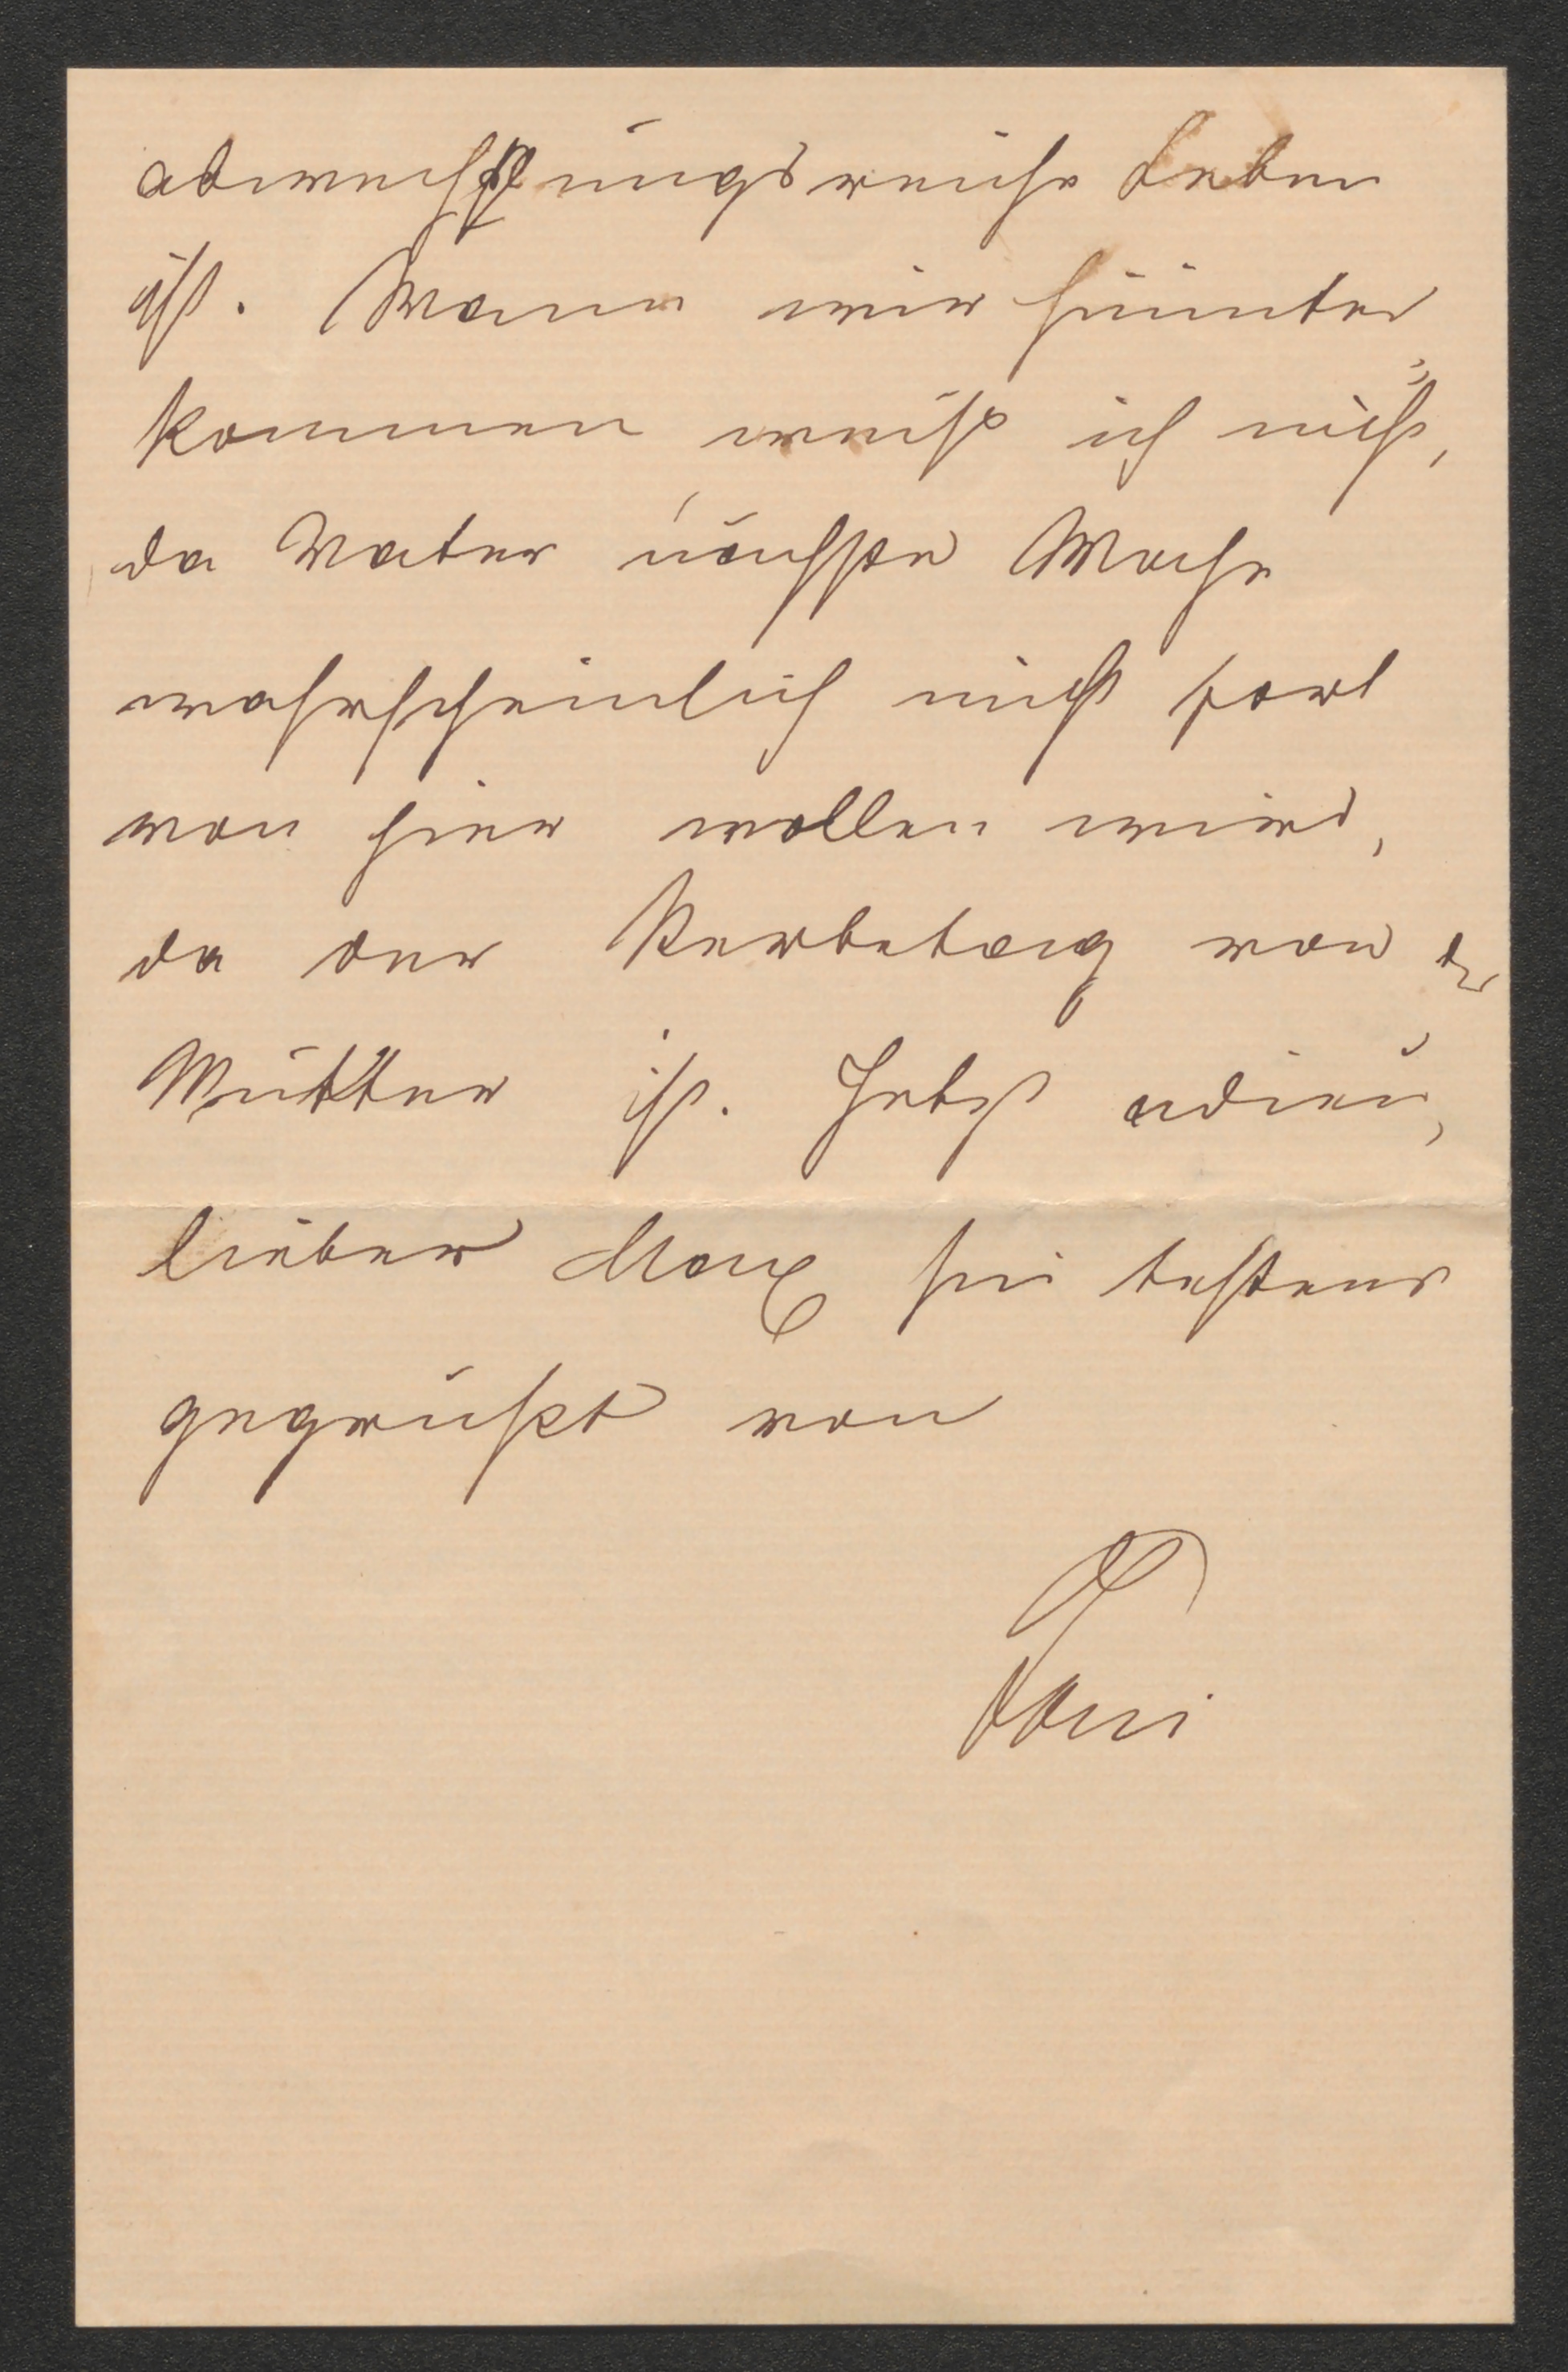 abwechslungsreiche Leben
ist. Wann wir hinunter
kommen weiß ich nicht,
da Vater nächste Woche
wahrscheinlich nicht fort
von hier wollen wird,
da der Sterbetag von der
Mutter ist. Jetzt adieu,
lieber Max sei bestens
gegrüßt von
Toni